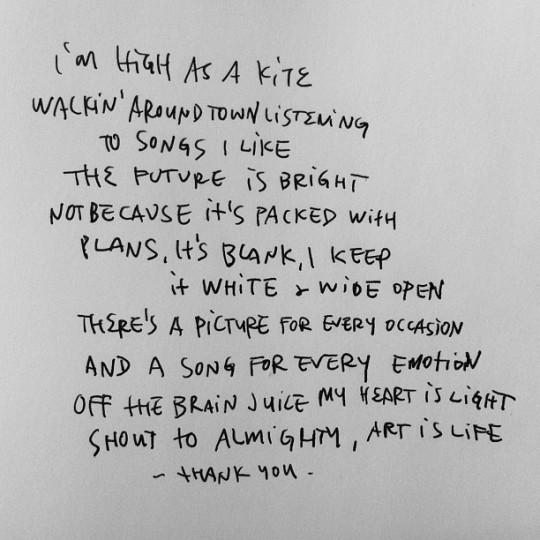 i'm HIGH AS A KITE
WALKIN' AROUND TOWN LISTENING
TO SONGS I LIKE
THE FUTURE iS BRIGHT
NOT BECAUSE it'S PACKED With
PLANS, It'S BLANK, I KEEP
it WHITE & WIDE OPEN
THERE'S A PiCTURE FOR EVERY OCCASION
AND A SONG FOR EVERY EMOTiON
OFF tHE BRAIN JUICE MY HEART iS LiGHT
SHOUT tO ALMIGHTY, ART iS LIFE
- tHANK YOU -